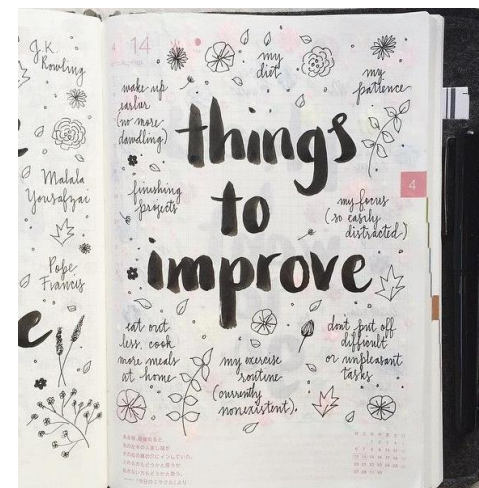 J.K.
Rowling
Malala
Yousafzai
Pope
Francis
e
4
14
my
diet
my
patience
wake up
earlier
(no more
dawdling)
things
to
improve
finishing
projects
4
my focus
(so easily
distracted)
eat out
less, cook
more meals
at home
my exercise
routine
(currently
nonexistent).
don't put off
difficult
or unpleasant
tasks